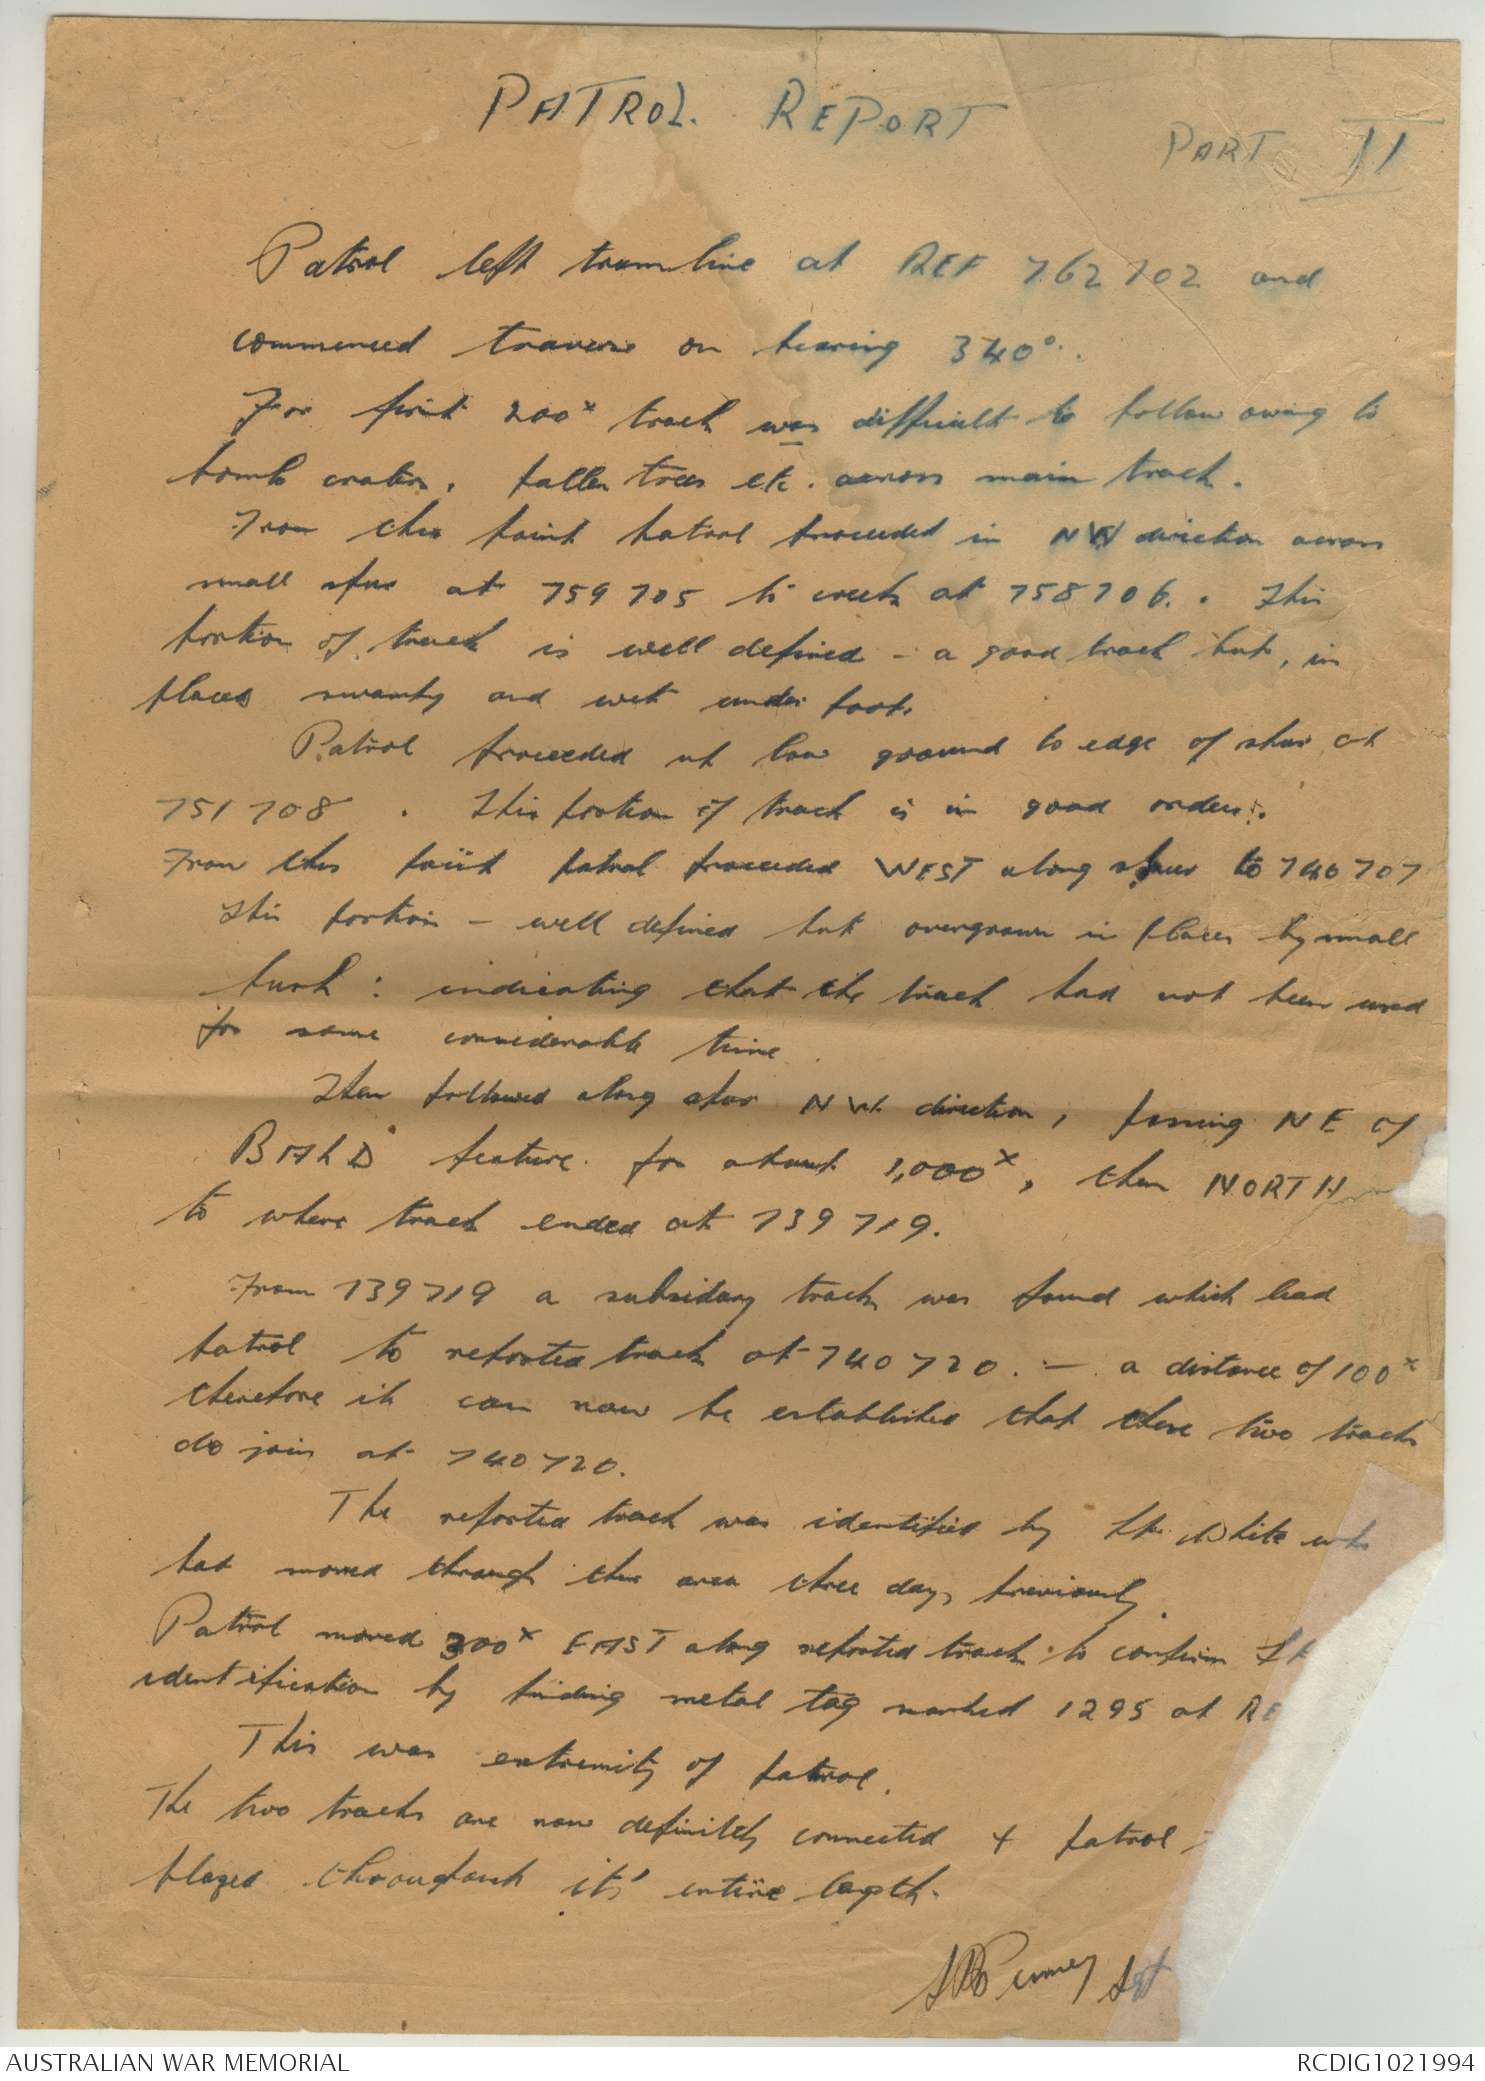 PATROL REPORT PART II
Patrol left tramline at REF 762702 and
commenced traverse on bearing 340°.
For first 200x track was difficult to follow owing to
bomb craters, fallen trees etc. across main track.
From this point patrol proceeded in NW direction across
small spur at 759705 to creek at 758706. This
portion of track is well defined - a good track but, in
places swampy and wet under foot.
Patrol proceeded at low ground to edge of spur at
751708. This portion of track is in good order.
From this point patrol proceeded WEST along spur to 740707
This portion - well defined but overgrown in places by small
bush: indicating that the track had not been used
for some considerable time.
Then followed along spur NW. direction, passing NE of
BALD feature for about 1,000x, then NORTH
to where track ended at 739719.
From 739719 a subsidary track was found which lead
patrol to reported track at 740720. - a distance of 100x
therefore it can now be established that these two tracks
do join at 740720.
The reported track was identified by Lt. White who
had moved through this area three days previously.
Patrol moved 300x EAST along reported track to confirm
identification by finding metal tag marked 1295 at
This was extremity of patrol.
The two tracks are now definitely connected + patrol
blazed throughout its' entire length.
Penney Sgt
AUSTRALIAN WAR MEMORIAL RCDIG1021994